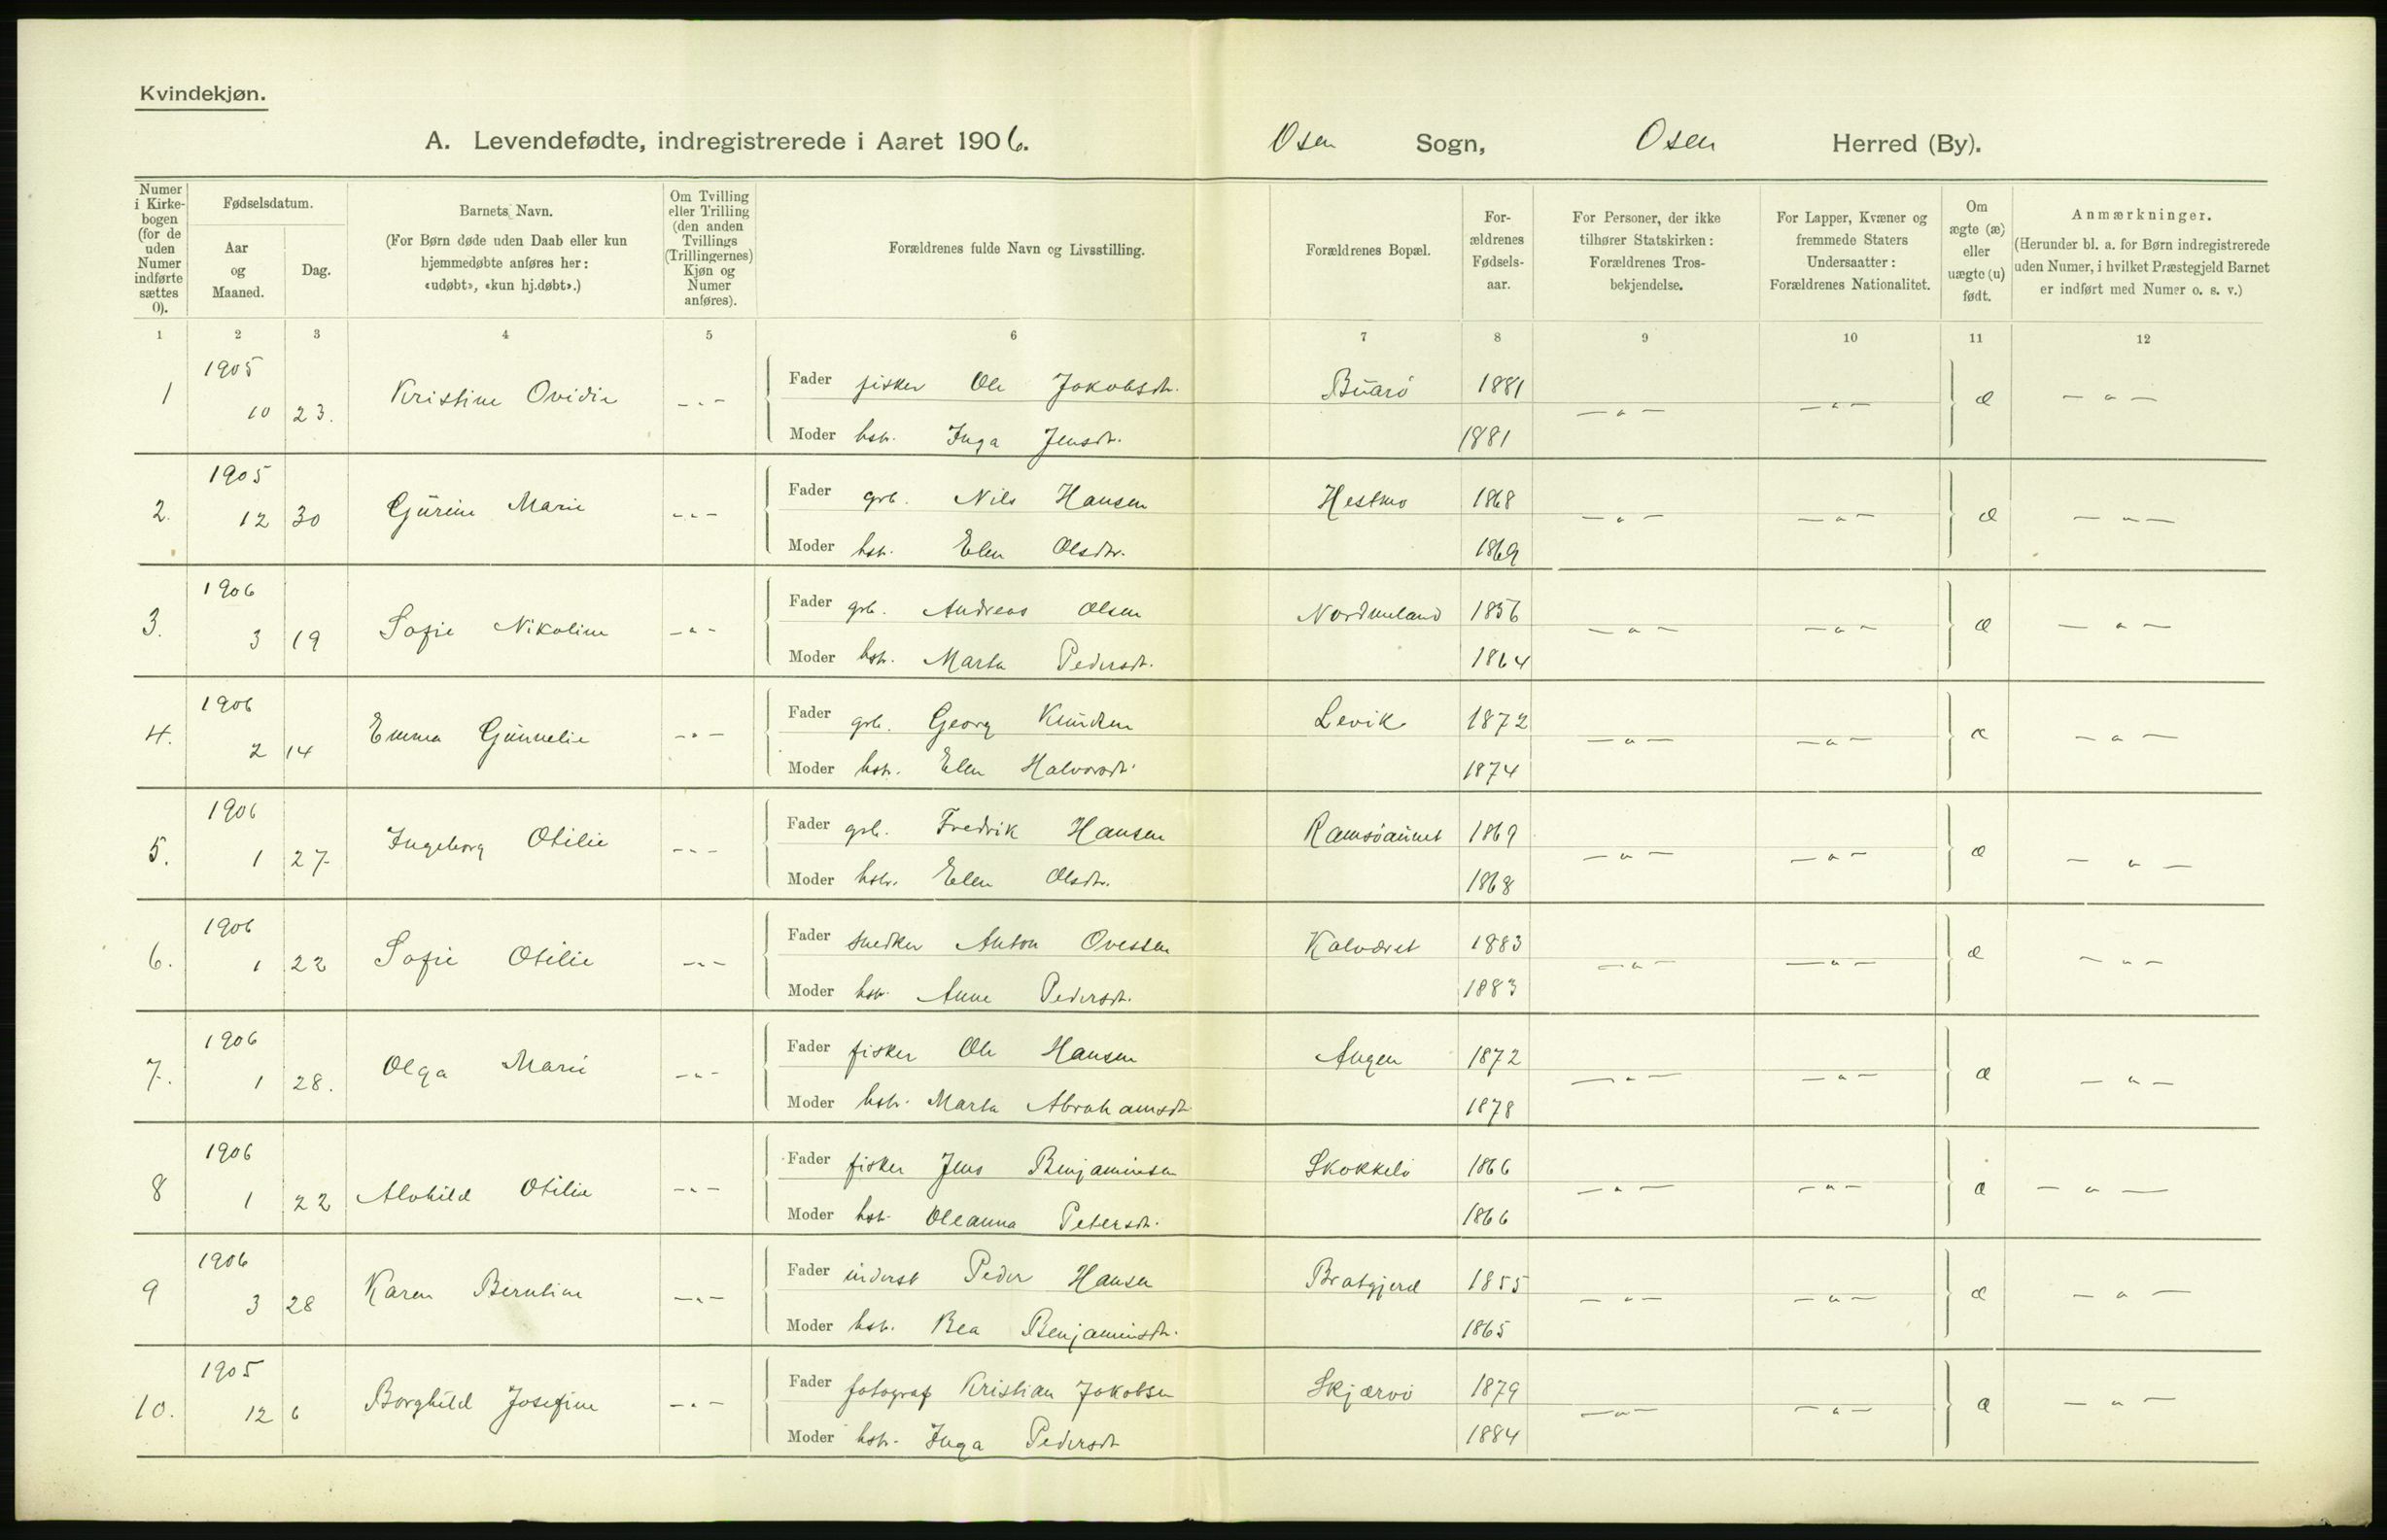 Kvindekjøn.
A. Levendefødte, indregistrerede i Aaret 1906. Osen Sogn, Osen Herred (By).
Numer i Kirkebogen (for de uden Numer indførte sættes 0).
Fødselsdatum.
Aar og Maaned.
Dag.
Barnets Navn.
(For Børn døde uden Daab eller kun hjemmedøbte anføres her: «udøbt», «kun hj.døbt».)
Om Tvilling eller Trilling (den anden Tvillings (Trillingernes) Kjøn og Numer anføres).
Forældrenes fulde Navn og Livsstilling.
Forældrenes Bopæl.
Forældrenes Fødselsaar.
For Personer, der ikke tilhører Statskirken: Forældrenes Trosbekjendelse.
For Lapper, Kvæner og fremmede Staters Undersaatter: Forældrenes Nationalitet.
Om ægte (æ) eller uægte (u) født.
Anmærkninger.
(Herunder bl. a. for Børn indregistrerede uden Numer, i hvilket Præstegjeld Barnet er indført med Numer o. s. v.)
1 2 3 4 5 6 7 8 9 10 11 12
1 1905 10 23. Kristine Ovidie — „ — Fader fisker Ole Jakobsdtr. Buarö 1881 — „ — — „ — æ — „ —
Moder hstr. Inga Jensdtr. 1881
2. 1905 12 30 Gurine Marie — „ — Fader grb. Nils Hansen Hestmo 1868 — „ — — „ — æ — „ —
Moder hstr. Elen Olsdtr. 1869
3. 1906 3 19 Sofie Nikoline — „ — Fader grb. Andreas Olsen Nordmeland 1856 — „ — — „ — æ — „ —
Moder hstr. Marta Pedersdtr. 1864
4. 1906 2 14 Emma Gunnelie — „ — Fader grb. Georg Knudsen Levik 1872 — „ — — „ — æ — „ —
Moder hstr. Elen Halvorsdtr. 1874
5. 1906 1 27 Ingeborg Otilie — „ — Fader grb. Fredrik Hansen Ramsöaunet 1869 — „ — — „ — æ — „ —
Moder hstr. Elen Olsdtr. 1868
6. 1906 1 22 Sofie Otilie — „ — Fader snedker Anton Ovesen Kalværet 1883 — „ — — „ — æ — „ —
Moder hstr. Anne Pedersdtr. 1883
7. 1906 1 28. Olga Marie — „ — Fader fisker Ole Hansen Angen 1872 — „ — — „ — æ — „ —
Moder hstr. Marta Abrahamsdtr. 1878
8 1906 1 22 Alvhild Otilie — „ — Fader fisker Jens Benjaminsen Skokkelö 1866 — „ — — „ — æ — „ —
Moder hstr. Oleanna Petersdtr. 1866
9 1906 3 28 Karen Berntine — „ — Fader inderst Peder Hansen Bratgjerd 1855 — „ — — „ — æ — „ —
Moder hstr. Bea Benjaminsdtr. 1865
10. 1905 12 6 Borghild Josefine — „ — Fader fotograf Kristian Jakobsen Skjærvö 1879 — „ — — „ — æ — „ —
Moder hstr. Inga Pedersdtr 1884